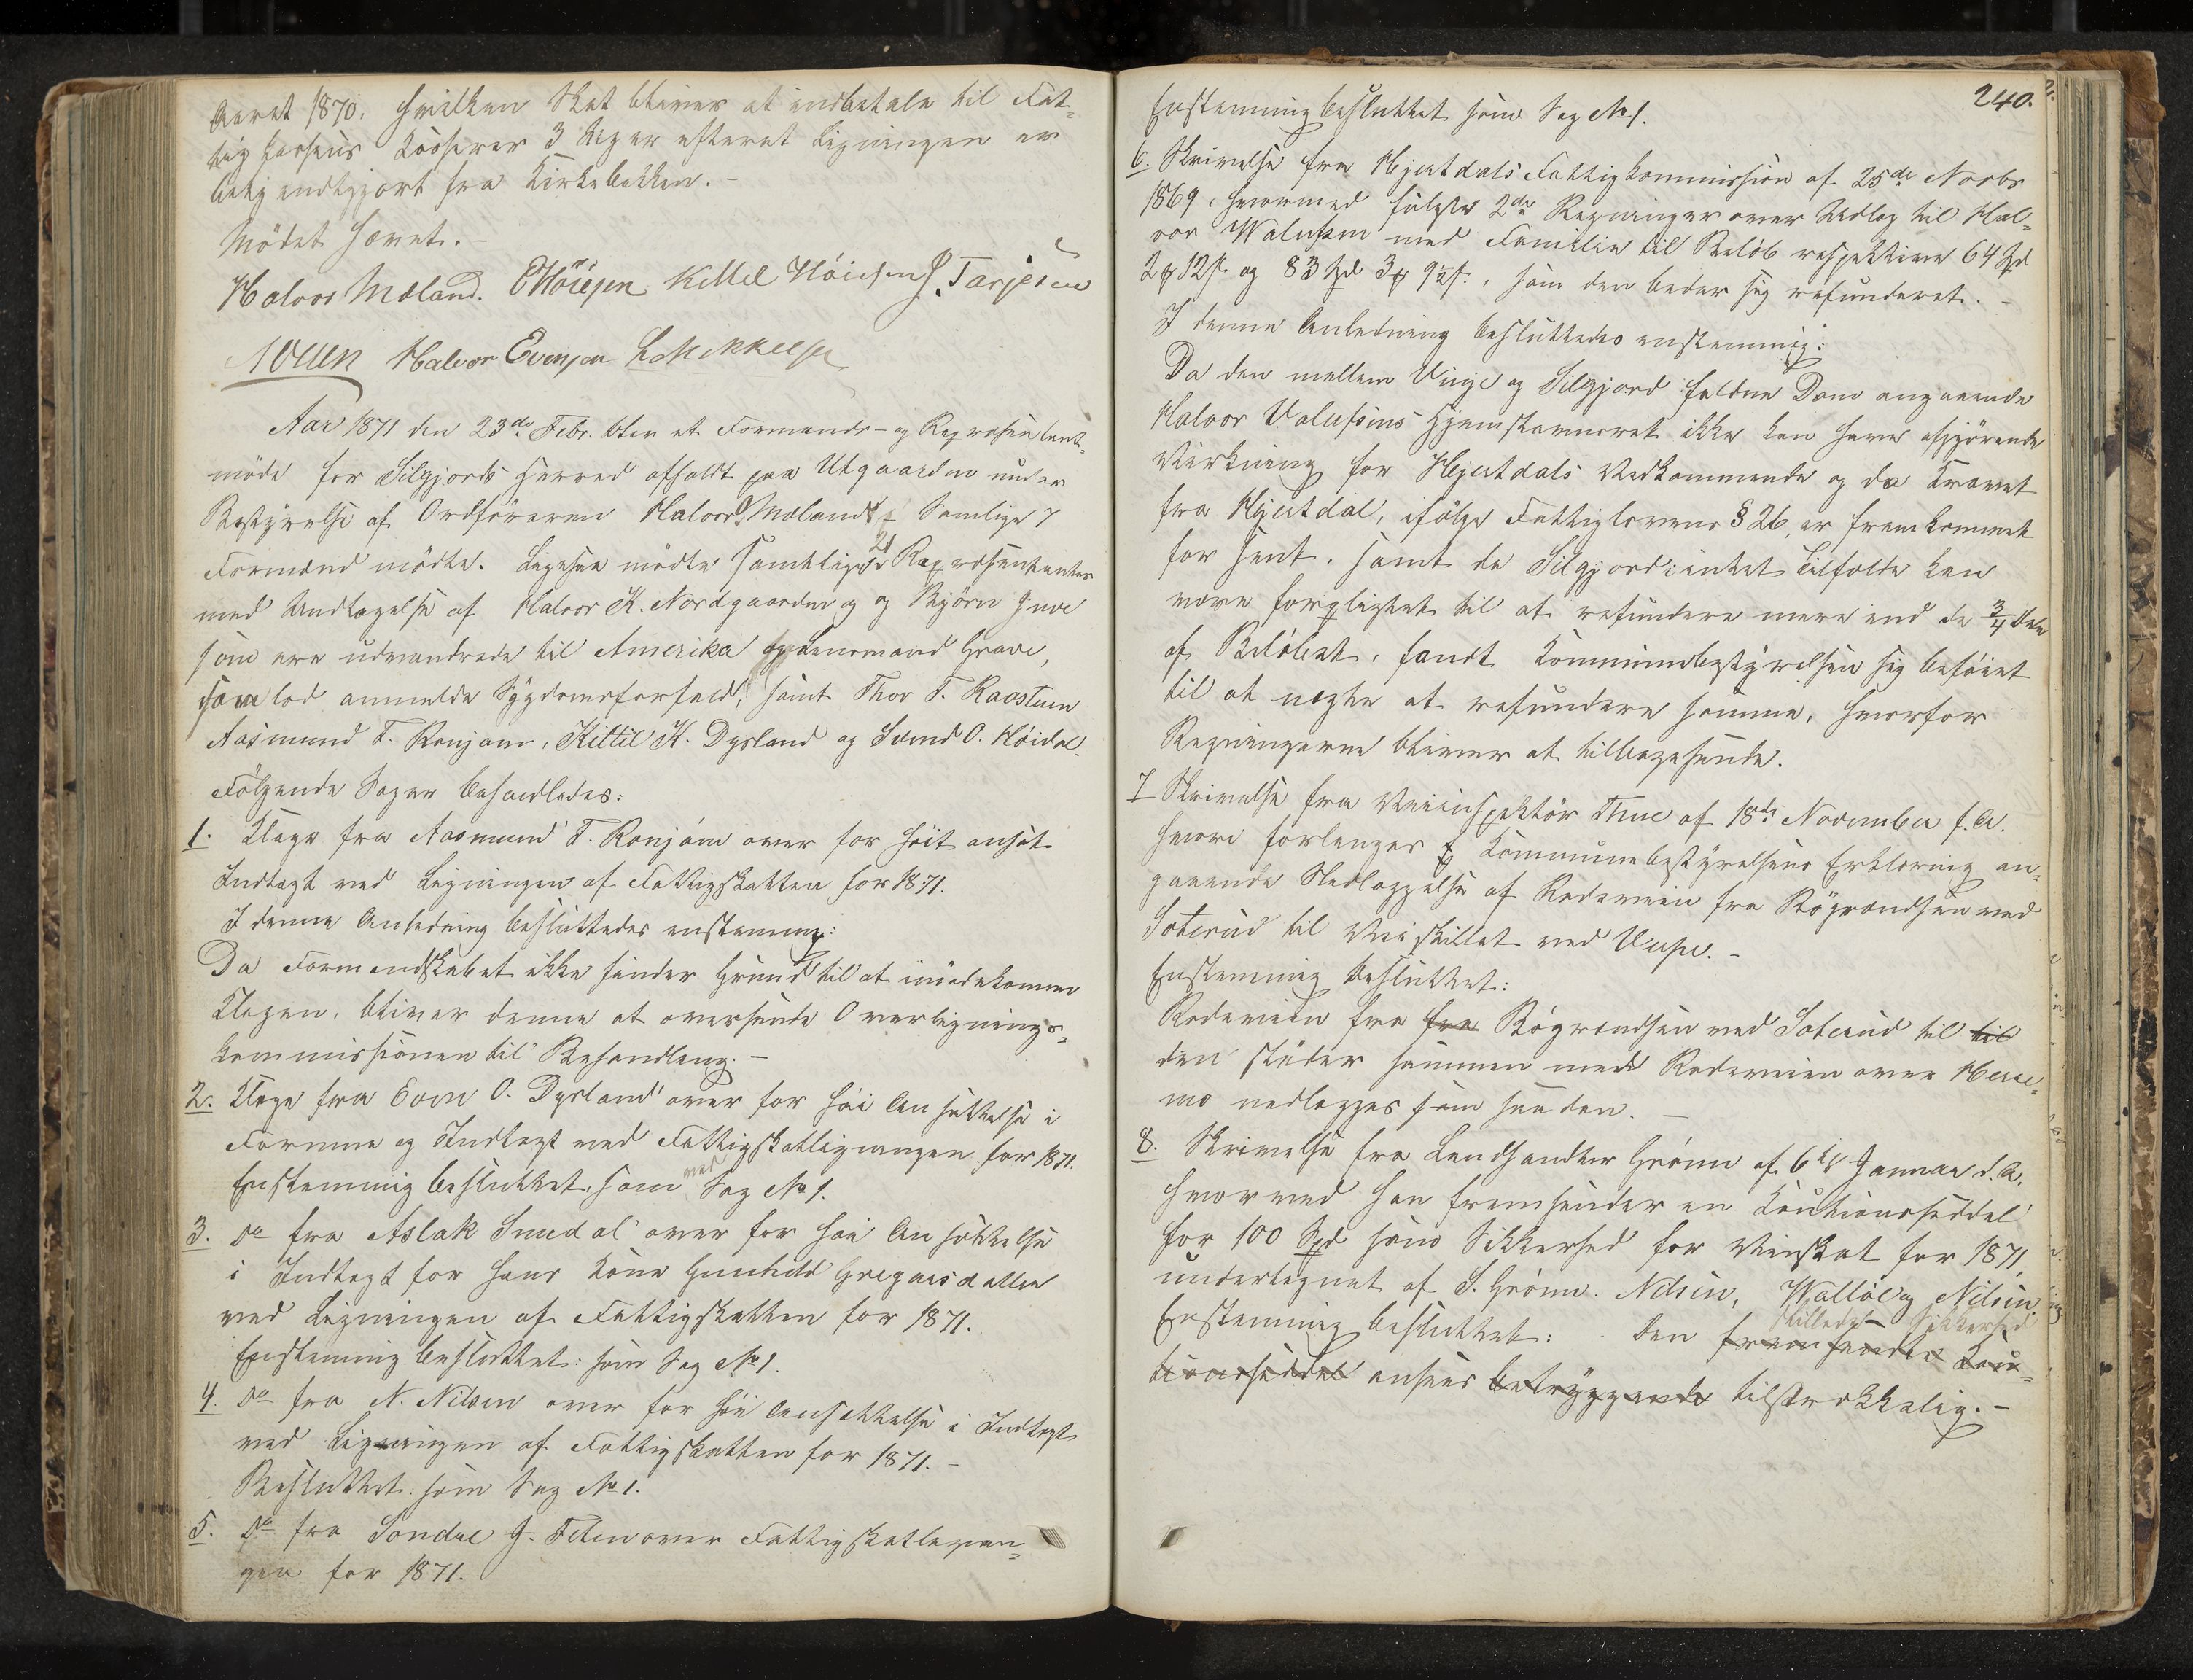 Aaret 1870, hvilken Skat bliver at indbetale til Fat-
tigkassens Kasserer 3 Uger efterat Ligningen er
bekjendtgjort fra Kirkebakken.-
Mødet hævet.-
Halvor Mæland. Kittel Høiesen J. Tarjesen
Halvor Evensen
Aar 1871 den 23de Febr. blev et Formands- og Repræsentant-
møde for Silgjords Herred afholdt paa Utgaarden under
Bestyrelse af Ordføreren Halvor Mæland. Samtlige 7
Formænd mødte. Ligesaa mødte samtlige 21 Repræsentanter
med Undtagelse af Halvor K. Nordgaarden og Bjørn
som ere udvandrede til Amerika og Lensmand Grave,
som lod anmelde Sygdomsforfald, samt Thor T. Raastuen
Aasmund T. Ronjom, Kittil K. Dyrland og Svend O. Høidal.
Følgende Sager behandledes:
1. Klage fra Aasmund T. Ronjom over for høit ansat
Indtægt ved Ligningen af Fattigskatten for 1871.
I denne Anledning besluttedes enstemmig:
Da Formandskabet ikke finder Grund til at imødekomme
Klagen, bliver denne at oversende Overlignings-
kommissionen til Behandling.-
2. Klage fra Even O. Dyrland over for høi Ansættelse i
Formue og Indtægt ved Fattigskatligningen for 1871.
Enstemmig besluttet som ved Sag No 1.
3. Do fra Aslak Smedal over for høi Ansættelse
i Indtægt for hans Kone Gunhild Gregarsdatter
ved Ligningen af Fattigskatten for 1871.
Enstemmig besluttet: som Sag No 1.
4. Do fra N. Nilsen over for høi Ansættelse i Indtægt
ved Ligningen af Fattigskatten for 1871.-
Besluttet: som Sag No 1.
5. Do fra Sondre J. over Fattigskatlignin-
gen for 1871.
240.
Enstemmig besluttet som Sag No 1.
6. Skrivelse fra Hjertdals Fattigkommission af 25de Novbr
1869, hvormed følger 2de Regninger over Udlæg til Hal-
vor Walufsen med Familie til Beløb respektive 64 Spd
2 12 s. og 83 Spd 3 9½ s., som den beder sig refunderet.-
I denne Anledning besluttedes enstemmig:
Da den mellem Vinje og Silgjord faldne Dom angaaende
Halvor Valufsens Hjemstavnsret ikke kan have afgjørende
Virkning for Hjertdals Vedkommende og da Kravet
fra Hjertdal, ifølge Fattiglovens § 26, er fremkommet
for sent, samt da Silgjord i intet Tilfælde kan
være forpligtet til at refundere mere end de ¾ Dele
af Beløbet, fandt Kommunebestyrelsen sig beføiet
til at negte at refundere samme, hvorfor
Regningerne bliver at tilbagesende.
7 Skrivelse fra Veiinspektør Thue af 18de November f.A.
hvori forlanges Kommunebestyrelsens Erklæring an-
gaaende Nedlæggelse af Rodeveien fra Bøgrændsen ved
Soterud til Veiskillet ved
Enstemmig besluttet:
Rodeveien fra fra Bøgrændsen ved Soterud til til
den støder sammen med Rodeveien over
mo nedlægges som saadan.-
8. Skrivelse fra Landhandler Grønn af 6te Januar d.A.
hvorved han fremsender en Kautionsseddel
for 100 Spd som Sikkerhed for Veiskat for 1871,
undertegnet af S. Grønn. Nilsen, Walløe og Nilsen.
stillede Sikkerhed
Enstemmig besluttet: Den fremsendte Kau-
tionsseddel ansees betryggende tilstrækkelig.-